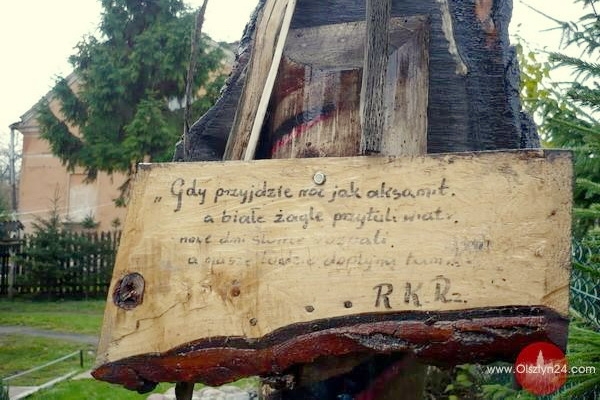 „Gdy przyjdzie noc jak aksamit.
a białe żagle przytuli wiatr.
nowe dni słońce rozpali.
a nasze łodzie dopłyną
R K R
www.Olsztyn24.com